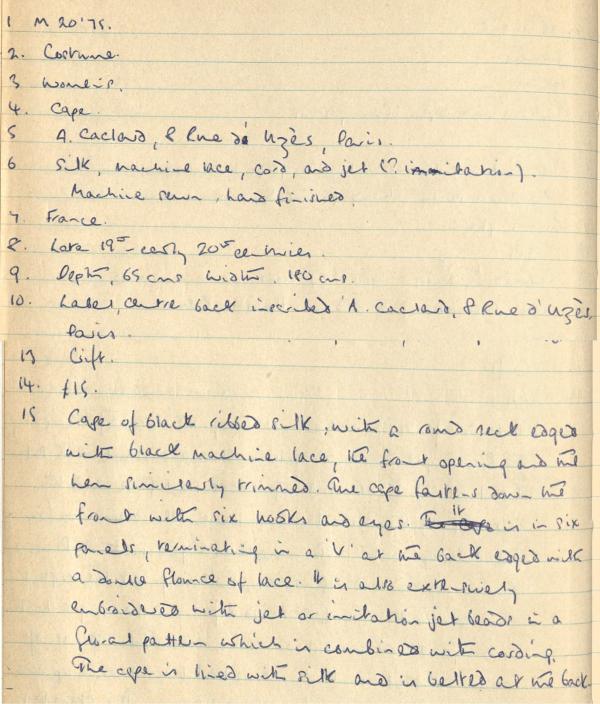 1 M 20'75.
2. Costume.
3 Women's.
4. Cape.
5 A. Caclard, 8 Rue d'Uzès, Paris.
6 Silk, machine lace, cord, and jet (? immitation).
Machine sewn, hand finished.
7. France.
8. Late 19th - early 20th centuries.
9. Depth, 65 cms width. 190 cms.
10. Label, centre back inscribed 'A. Caclard, 8 Rue d'Uzès,
Paris.
13 Gift.
14. £15.
15 Cape of black ribbed silk, with a round neck edged
with black machine lace, the front opening and the
hem similarly trimmed. The cape fastens down the
front with six hooks and eyes. It is in six
panels, terminating in a 'V' at the back edged with
a double flounce of lace. It is also extensively
embroidered with jet or imitation jet beads in a
floral pattern which is combined with cording.
The cape is lined with silk and is belted at the back.